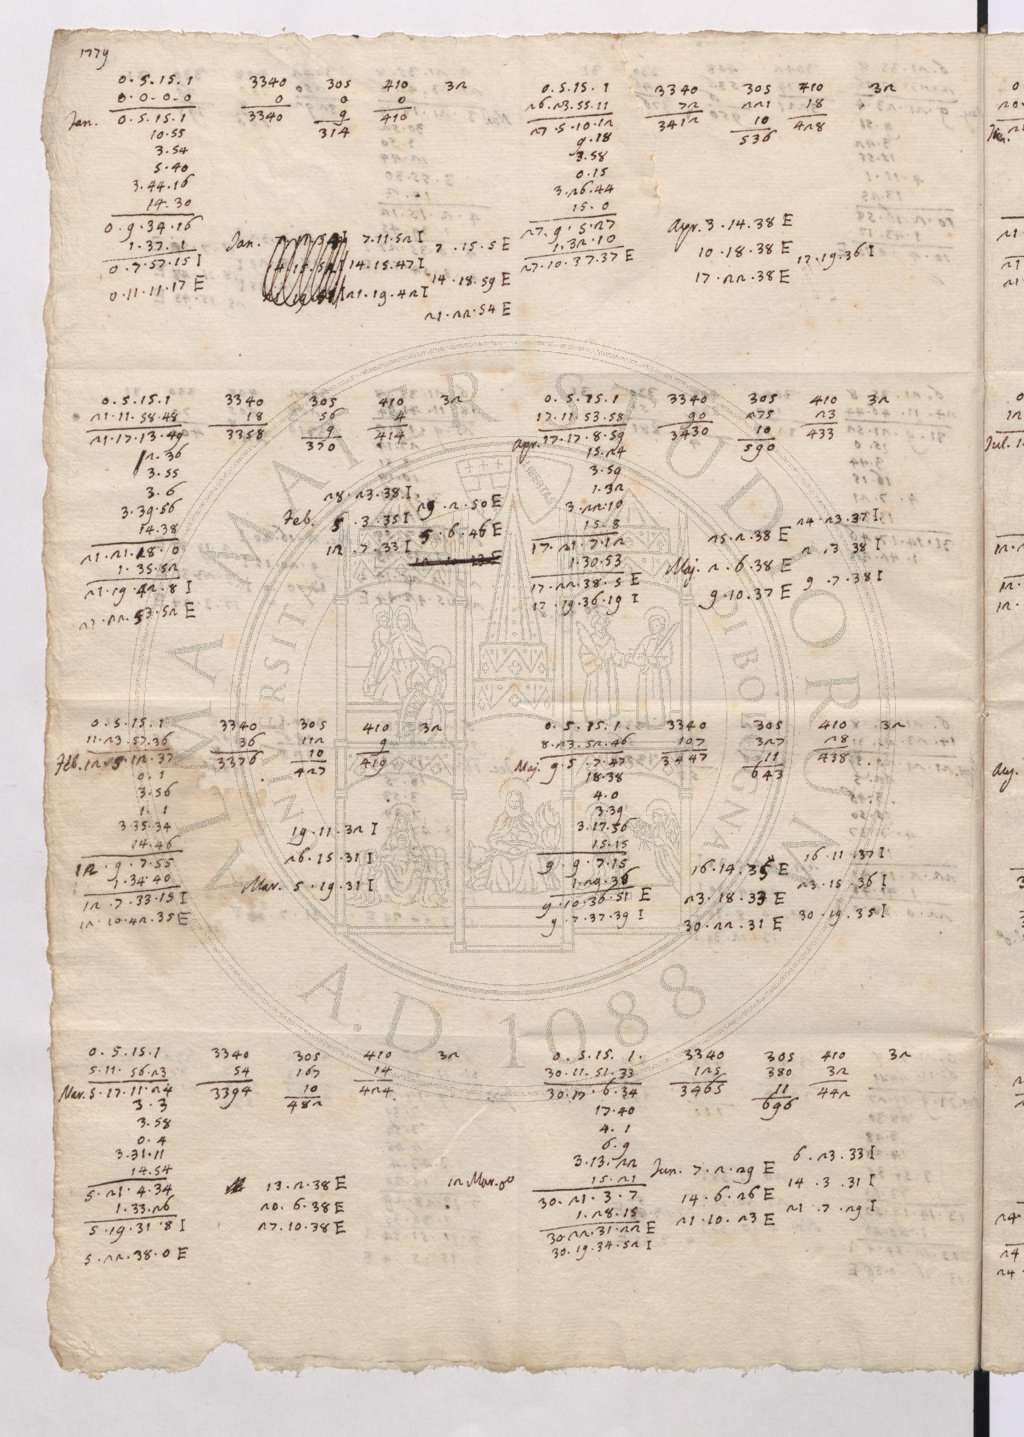 1779
0.5.15.1 3340 305 410 32
0.0.0.0 0 9 0
Jan. 0.5.15.1 3340 314 410
10.55
3.54
5.40
3.44.16
14.30
0.9.34.16
1.37.1
0.7.57.15 I
0.11.11.17 E
Jan. 7.11.52 I
14.15.47 I
21.19.42 I
7.15.5 E
14.18.59 E
21.22.54 E
0.5.15.1 3340 305 410 32
26.23.55.11 72 221 18
27.5.10.12 3412 10 428
536
9.18
3.58
0.15
3.26.44
15.0
27.9.5.27
1.32.10
27.10.37.37 E
Apr. 3.14.38 E
10.18.38 E 17.19.36 I
17.22.38 E
0.5.15.1 3340 305 410 32
21.11.58.48 18 56 4
21.17.13.49 3358 9 414
370
12.36
3.55
3.6
3.39.56
14.38
21.21.18.0
1.35.52
21.19.42.8 I
21.22.53.52 E
28.23.38 I
Feb. 5.3.35 I
12.7.33 I
29.2.50 E
5.6.46 E
0.5.15.1 3340 305 410 32
17.11.53.58 90 275 23
Apr. 17.17.8.59 3430 10 433
590
15.24
3.59
1.32
3.22.10
15.8
17.21.7.12
1.30.53
17.22.38.5 E
17.19.36.19 I
25.2.38 E
Maj. 2.6.38 E
9.10.37 E
24.23.37 I
2.3.38 I
9.7.38 I
0.5.15.1 3340 305 410 32
11.23.57.36 36 112 9
Feb. 12.5.12.37 3376 10 419
427
0.1
3.56
1.1
3.35.34
14.46
12.9.7.55
1.34.40
12.7.33.15 I
12.10.42.35 E
19.11.32 I
26.15.31 I
Mar. 5.19.31 I
0.5.15.1. 3340 305 410 32
8.23.52.46 107 327 28
Maj. 9.5.7.47 3447 11 438
643
18.38
4.0
3.39
3.17.56
15.15
9.9.7.15
1.29.36
9.10.36.51 E
9.7.37.39 I
16.14.35 E
23.18.33 E
30.22.31 E
16.11.37 I
23.15.36 I
30.19.35 I
0.5.15.1 3340 305 410 32
5.11.56.23 54 167 14
Mar. 5.17.11.24 3394 10 424
482
3.3
3.58
0.4
3.31.11
14.54
5.21.4.34
1.33.26
5.19.31.8 I
5.22.38.0 E
13.2.38 E
20.6.38 E
27.10.38 E
0.5.15.1. 3340 305 410 32
30.11.51.33 125 380 32
30.17.6.34 3465 11 442
696
17.40
4.1
6.9
3.13.22
15.21
30.21.3.7
1.28.15
30.22.31.22 E
30.19.34.52 I
Jun. 7.2.29 E
14.6.26 E
21.10.23 E
6.23.33 I
14.3.31 I
21.7.29 I
ALMA MATER STUDIORUM
UNIVERSITAS BONONIENSIS
LIBERTAS
A.D. 1088
Jul.
Aug.